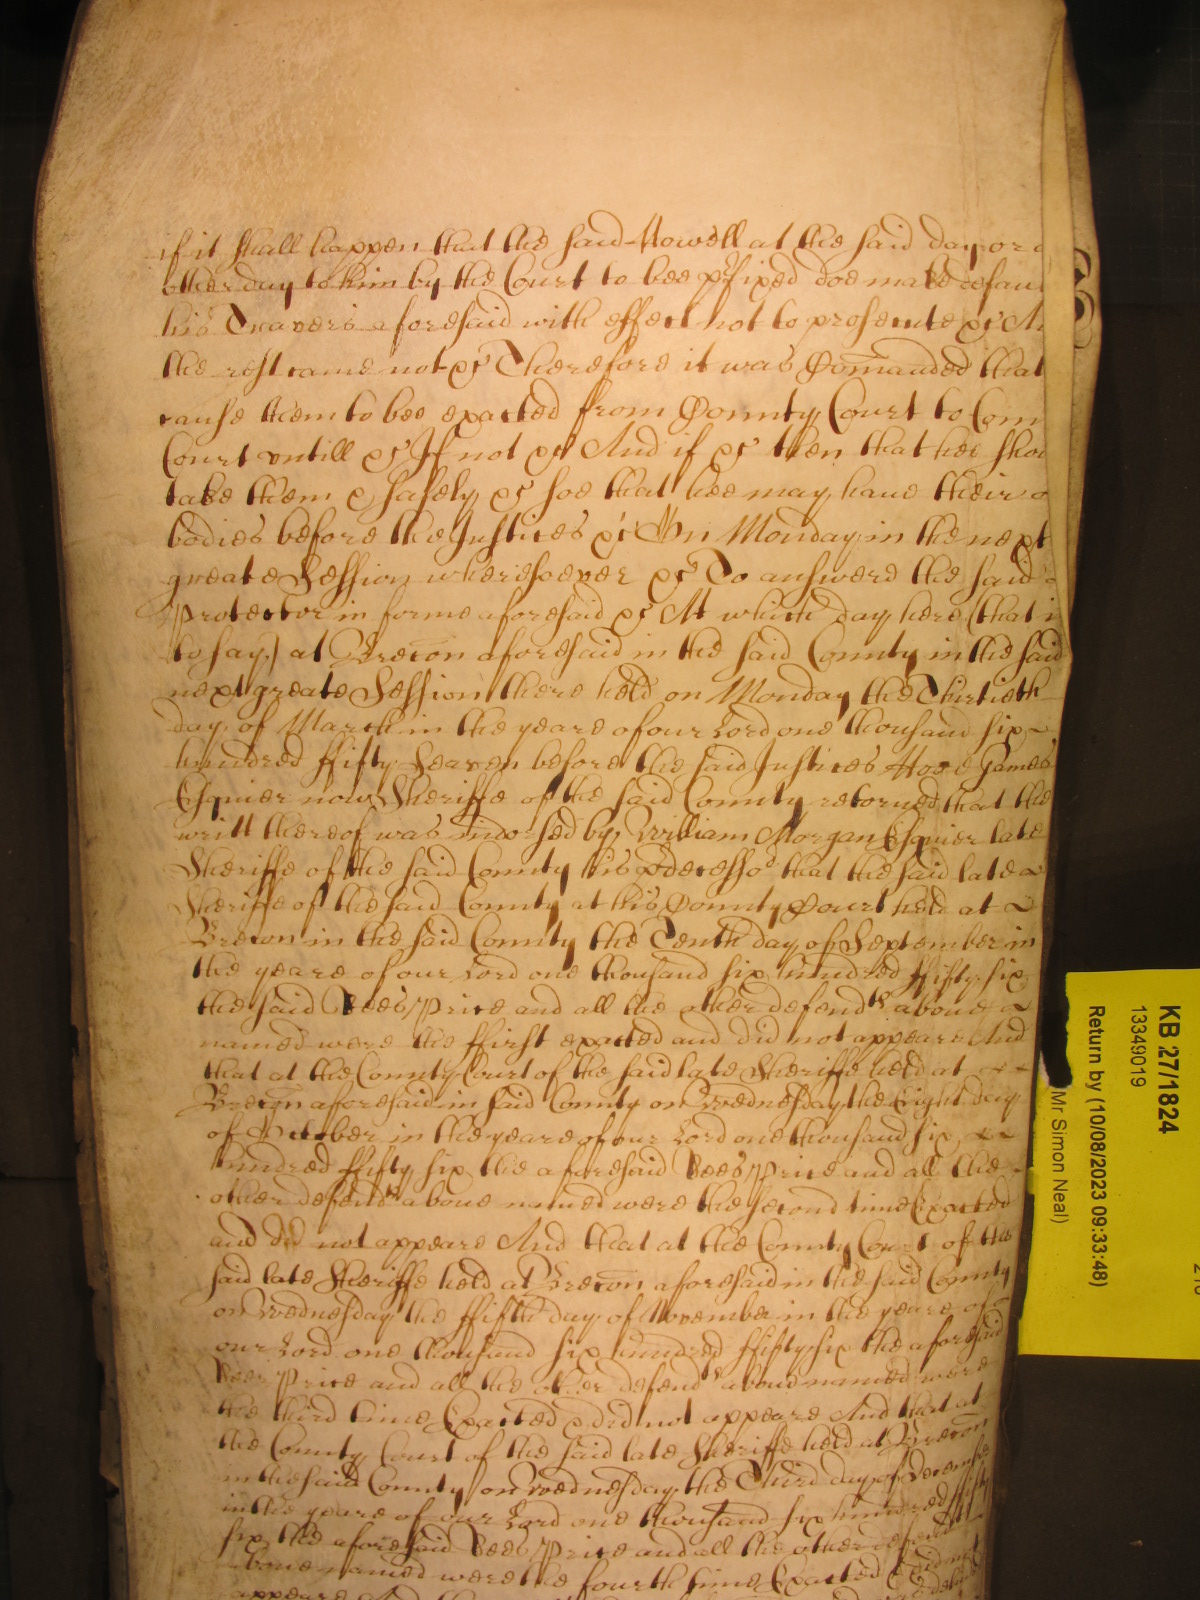 if it shall happen that the said Howell at the said day or
other day to him by the Court to bee p'fixed doe make defau
his Travers aforesaid with effect not to prosecute &c
the rest came not &c Therefore it was Comanded that
cause them to bee exacted from County Court to Coun
Court untill &c If not &c And if &c then that hee shou
take them & safely &c soe that hee may have their
bodies before the Justices &c On Monday in the next
greate Session wheresoever &c To answere the said
Protector in forme aforesaid &c At which day here (that i
to say) at Brecon aforesaid in the said County in the said
next greate Session there held on Monday the Thirtieth
day of March in the yeare of our Lord one thousand six
hundred ffifty Seaven before the said Justices Hoo Games
Esquier now Sheriffe of the said County retorned that the
writt thereof was indorsed by William Morgan Esquier late
Sheriffe of the said County his p'decessor that the said late
Sheriffe of the said County at his County Court held at
Brecon in the said County the Tenth day of September in
the yeare of our Lord one thousand six hundred ffifty six
the said Rees Price and all the other defendts above
named were the ffirst exacted and did not appeare And
that at the County Court of the said late Sheriffe held at
Brecon aforesaid in said County on Wednesday the Eight day
of October in the yeare of our Lord one thousand six
hundred ffifty six the aforesaid Rees Price and all the
other defendts above named were the second time Exacted
and did not appeare And that at the County Court of the
said late Sheriffe held at Brecon aforesaid in the said County
on Wednesday the ffifth day of November in the yeare of
our Lord one thousand six hundred ffifty six the aforesaid
Rees Price and all the other defendts above named were
the third time Exacted & did not appeare And that at
the County Court of the said late Sheriffe held at Brecon
in the said County on Wednesday the Third day of December
in the yeare of our Lord one thousand six hundred ffifty
six the aforesaid Rees Price and all the other defendts
above named were the fourth time Exacted & did not
appeare And
KB 27/1824
13349019
Return by (10/08/2023 09:33:48)
Mr Simon Neal)